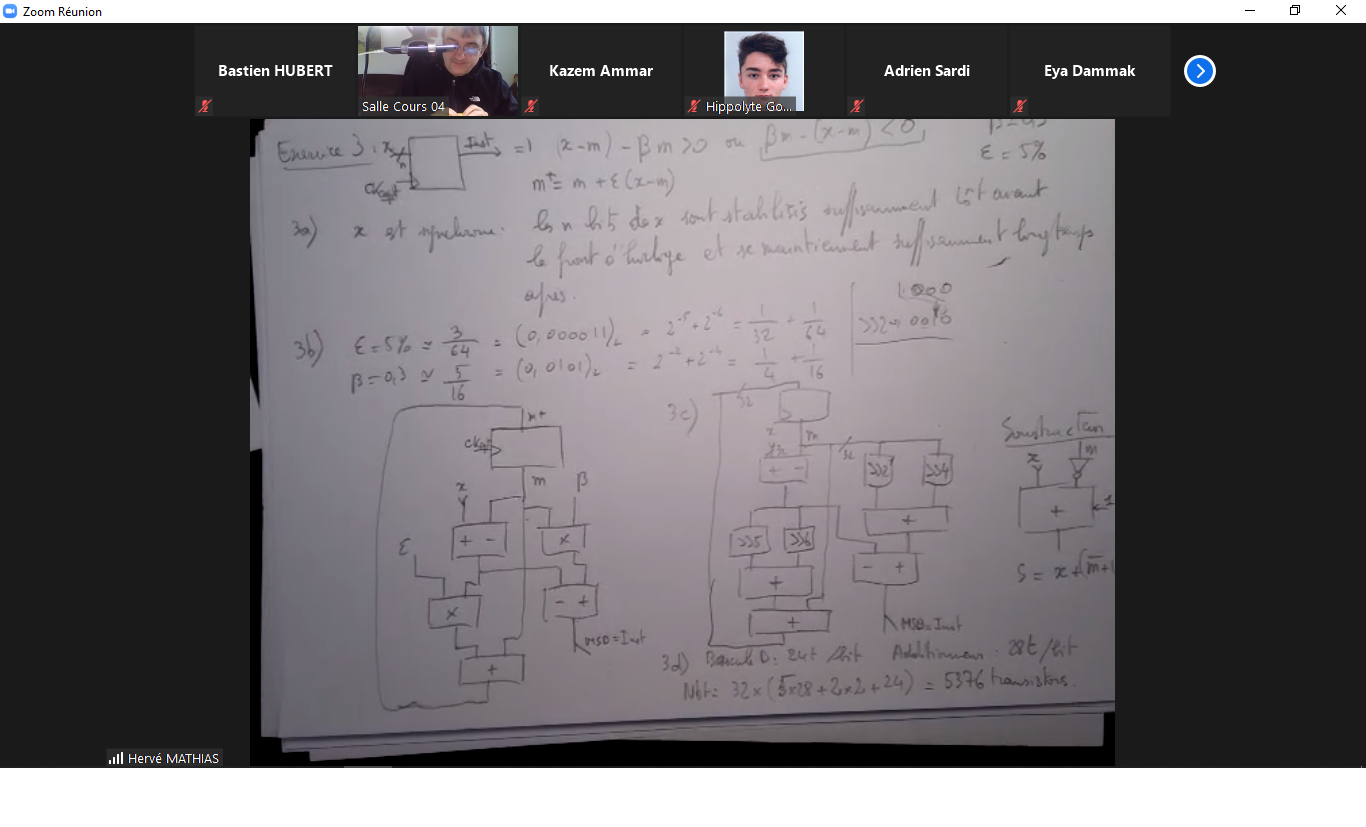 Zoom Réunion
Bastien HUBERT
Salle Cours 04
Kazem Ammar
Hippolyte Go...
Adrien Sardi
Eya Dammak
Exercice 3 : x n Inst =1 (x-m) - βm > 0 ou βm - (x-m) < 0
ε = 5%
m⁺ = m + ε(x-m)
3a) x est synchrone. les n bits de x sont stabilisés suffisamment tôt avant
le front d'horloge et se maintiennent suffisamment longtemps
après.
3b) ε = 5% ≃ 3/64 = (0,000011)₂ = 2⁻⁵ + 2⁻⁶ = 1/32 + 1/64
β = 0,3 ≃ 5/16 = (0,0101)₂ = 2⁻² + 2⁻⁴ = 1/4 + 1/16
1000
>>2 → 0010
m+
m
x
β
ε
+ -
x
x
- +
MSB = Inst
+
3c)
32
x
m
32
+ -
>>2
>>4
>>5
>>6
+
+
+
- +
MSB = Inst
Soustraction
x
m
+
1
S = x + (m̅ + 1
3d) Bascule D : 24t /bit Additionneur : 28t /bit
Nbt = 32 x (5x28 + 2x2 + 24) = 5376 transistors.
Hervé MATHIAS